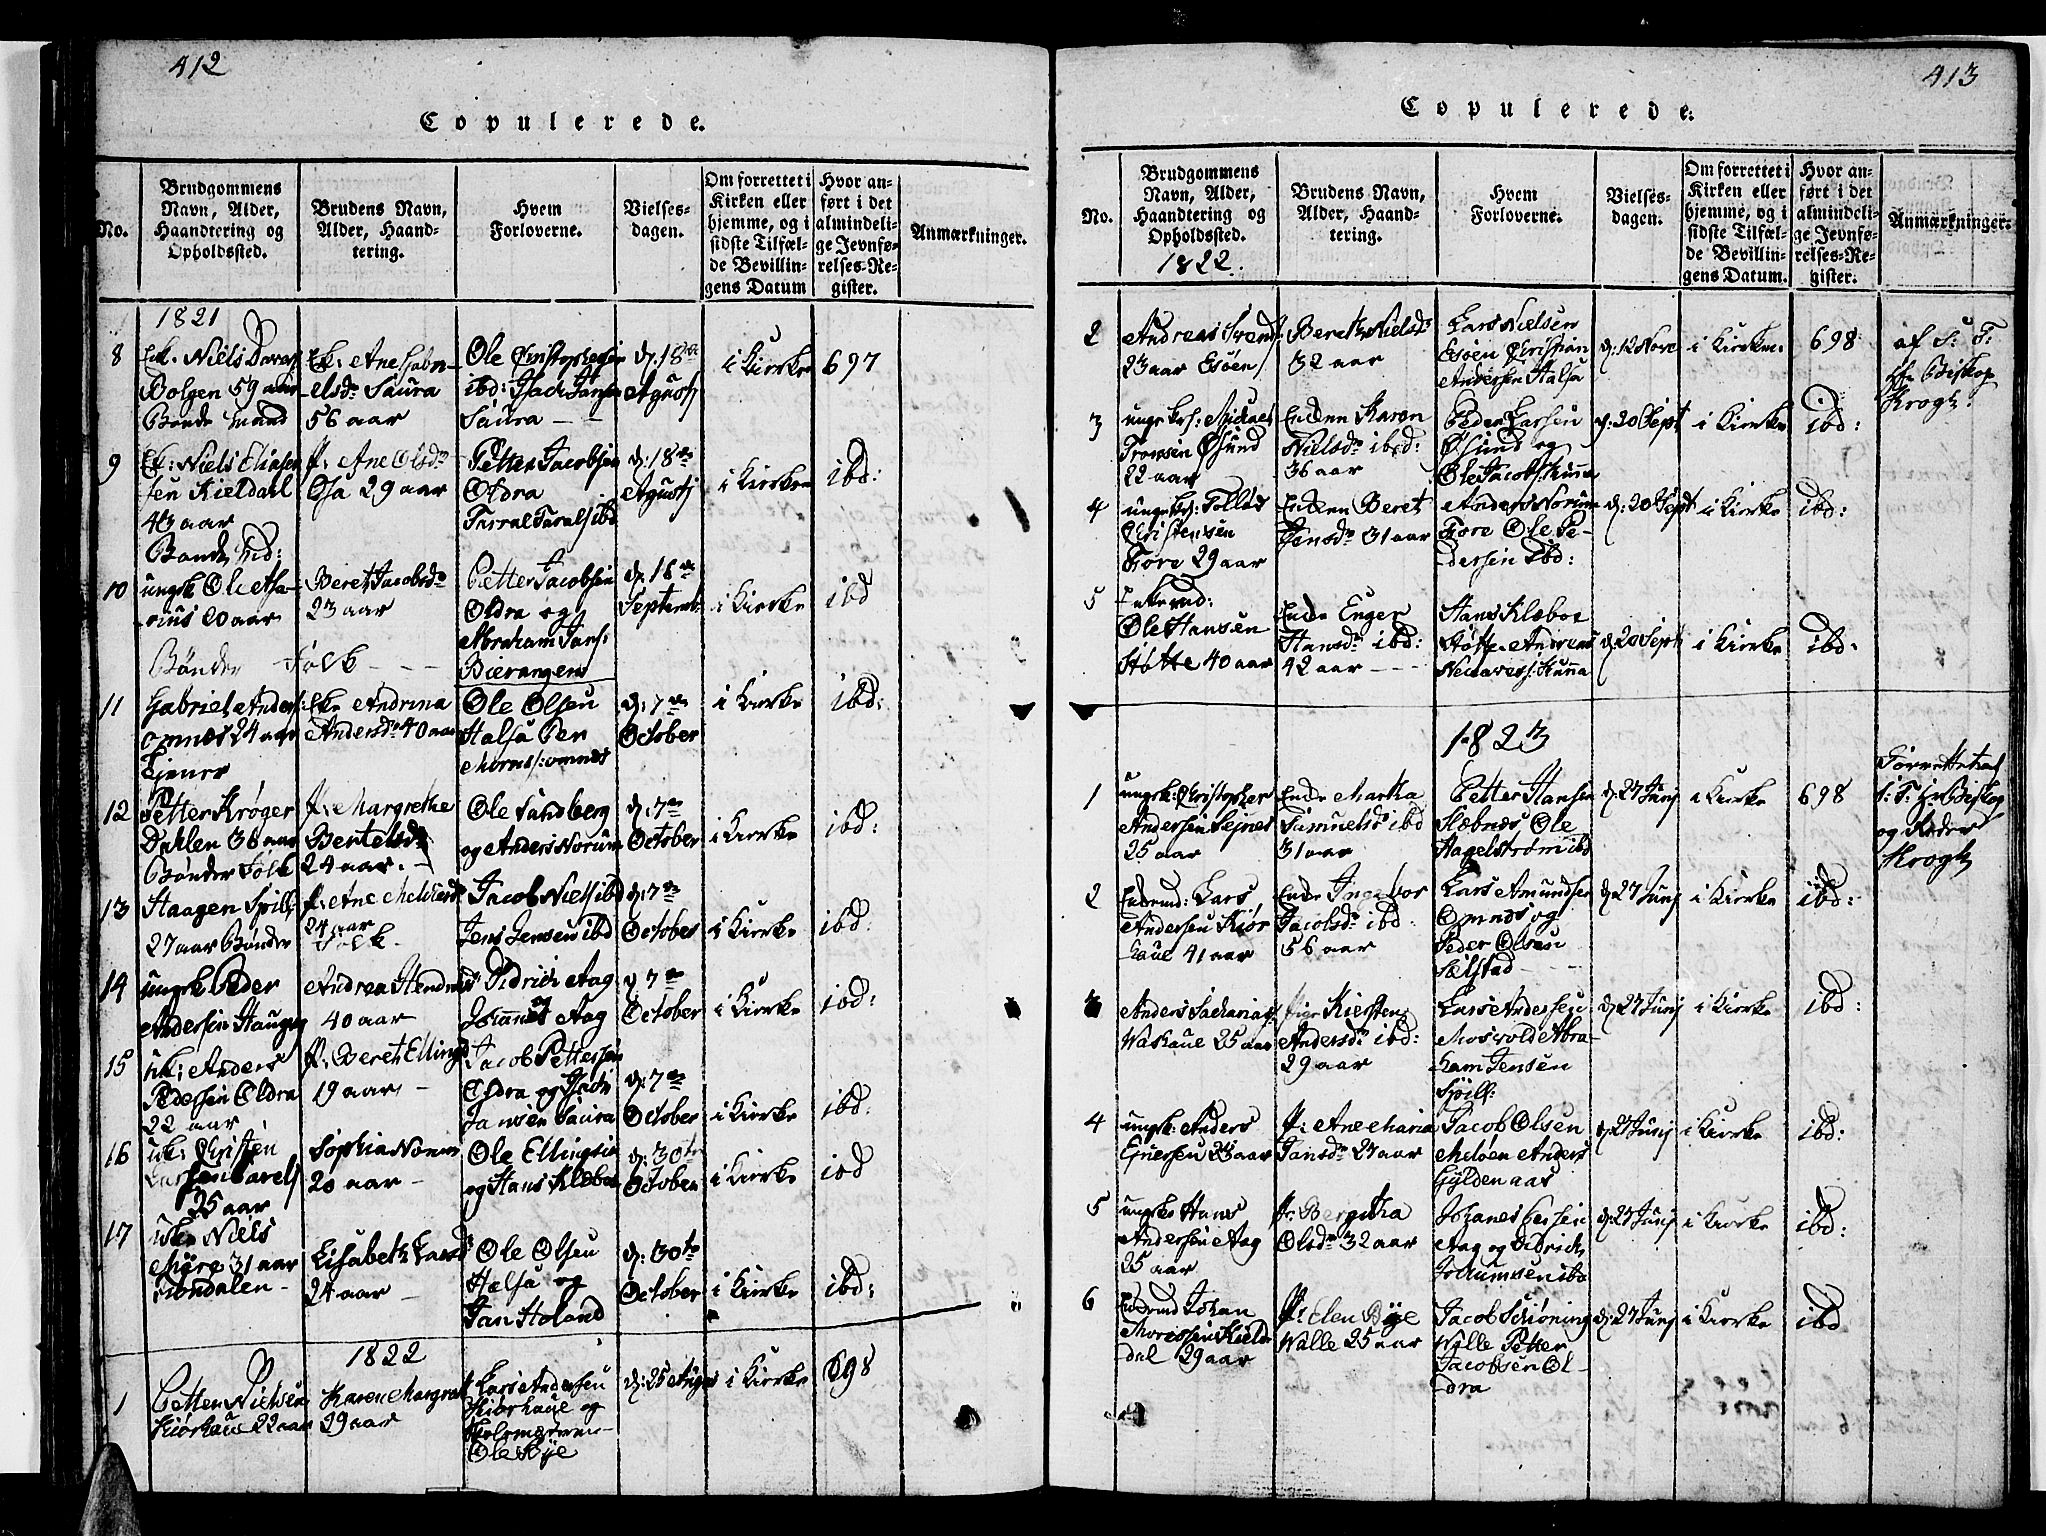 412
Copulerede.
No.
Brudgommens
Navn, Alder,
Haandtering og
Opholdssted.
Brudens Navn,
Alder, Haand-
tering.
Hvem
Forloverne.
Vielses-
dagen.
Om forrettet i
Kirken eller
hjemme, og i
sidste Tilfæl-
de Bevillin-
gens Datum
Hvor an-
ført i det
almindeli-
ge Jevnfø-
relses-Re-
gister.
Anmærkninger.
1821
8
Ek. Niels
Bolgen 59 aar
Bonde Mand
Ek: Ane Gabri-
elsdr Saura
56 aar
Ole Christophersen
ibd: Isach Jansen
Saura
d: 18de
Agustj
i Kirke
697
9
Ek: Niels Eliasen
Kieldahl
43 aar
Bonde
P: Ane Olsdr
Osa 29 aar
Petter Jacobsen
Oldra
Tarral Taralsibd
d: 18de
Agustj
i Kirken
ibd:
10
ungk Ole Asa-
rius 20 aar
Bønder Folk
Beret Jacobsdr
23 aar
Petter Jacobsen
Oldra og
Abraham Jans:
Bierangen
d: 18de
Septembr
i Kirke
ibd
11
Gabriel Anders:
omnes 24 aar
Tjener
Eke Andrina
Andersdr 40 aar
Ole Olsen
Halsa Per
Morns/: omnes
d: 7de
October
i Kirke
ibd:
12
Petter Krøger
Dahlen 36 aar
Bønder Folk
P: Margrethe
Bertelsdr
24 aar.
Ole Sandberg
og Anders Norum
d: 7de
October
i Kirke
ibd:
13
Haagen Spill:
27 aar Bønder
P: Ane Melchersdr
24 aar
Folk
Jacob Niels ibd
Jens Jensen ibd
d: 7de
October
i Kirke
ibd:
14
ungk Peder
Andersen Haugvig
Andrea Hendrichsdr
40 aar
Didrich Aag
og
Johannes Aag
d 7de
October
i Kirke
ibd:
15
uk: Anders
Pedersen Oldra
22 aar
P: Beret Ellingsdr
19 aar
Jacob Pettersen
Oldra og Isach
Jansen Saura
d: 7de
October
i Kirke
ibd:
16
uk: Christen
Larsen
25 aar
Sophia Norum
20 aar
Ole Ellingsen
og Hans Klæboe
d: 30te
October
i Kirke
ibd
17
uke Niels
Møre 31 aar
Elisabeth Larsdr
24 aar
Ole Olsen
Halsa og
Jan Holand
d: 30te
October
i Kirke
ibd:
1822
1
Petter Nielsen
Kiørhaug 22 aar
Karen Margret
29 aar
Lars Andersen
Kiørhaug og
Ole Bye
d: 25 Agust
i Kirke
698
413
Copulerede.
No.
Brudgommens
Navn, Alder,
Haandtering og
Opholdssted.
1822.
Brudens Navn,
Alder, Haand-
tering.
Hvem
Forloverne.
Vielses-
dagen.
Om forrettet i
Kirken eller
hjemme, og i
sidste Tilfæl-
de Bevillin-
gens Datum.
Hvor an-
ført i det
almindeli-
ge Jevnfø-
relses-Re-
gister.
Anmærkninger.
2
Andreas Svends
23 aar Esøen
Beret Nielsdr
32 aar
Lars Nielsen
Esøen Christian
Andersen Halsa
d: 12 Nove
i Kirken
698
af S: T:
Hr Biskop
Krogh:
3
ungkrl: Michael
Tromsen Øsund
22 aar
Enken Karen
Nielsdr ibd:
36 aar
Peder Larsen
Øsund og
Ole Jacobs Kunna
d: 20 Sept
i Kirke
ibd:
4
ungkrl: Tollof
Christensen
Fore 29 aar
Enken Beret
Jensdr 31 aar
Anders Norum
Fore Ole Pe-
dersen ibd:
d: 20 Sept
i Kirke
ibd:
5
Enkemd:
Ole Hansen
Støtte 40 aar
Enke Enger
Hansdr ibd:
42 aar
Hans Klæboe
Støtte Andreas
Kunna
d: 20 Sept
i Kirke
ibd:
1823
1
ungk: Christopher
Andersen Selnes
25 aar
Enke Martha
Samuelsdr ibd
31 aar
Petter Hansen
Ole
Hagelstrøm ibd
d: 27 Junj
i Kirke
698
Forrettet af
S: T: Hr Biskop
og Ridder
Krogh
2
Enkemd: Lars
Andersen Kiør
haug 41 aar
Enke Ingebor
Jacobsdr ibd
56 aar
Lars Amundsen
Omnes og
Peder Olsen
Sælstad
d 27 Junj
i Kirke
ibd:
3
Anders Sacharias:
Washaug 25 aar
Pige Kiersten
Andersdr ibd:
29 aar
Lars Andersen
Mosvold Abra-
ham Jensen
Spill:
d 27 Junj
i Kirke
ibd:
4
ungk: Anders
Enersen 23 aar
P: Ane Maria
Jansdr 27 aar
Jacob Olsen
Meløen Anders
Gylden aas
d 27 Junj
i Kirke
ibd:
5
ungke Hans
Andersen Aag
25 aar
P: Bergitha
Olsdr 32 aar
Johanes Persen
Aag og Didrich
Jochumsen ibd
d: 27 Junj
i Kirke
ibd:
6
Enkemd Johan
Morissen Kield
dal 29 aar
P: Elen Bye
Walle 25 aar
Jacob Schiøning
Walle Petter
Jacobsen Ol-
dra
d: 27 Junj
i Kirke
ibd